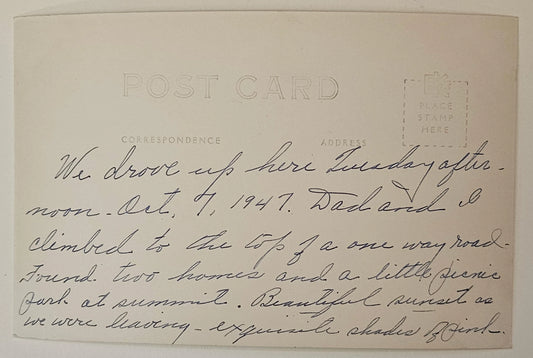 POST CARD
PLACE
STAMP
HERE
CORRESPONDENCE ADDRESS
We drove up here Tuesday after-
noon - Oct. 7, 1947. Dad and I
climbed to the top of a one way road-
Found two homes and a little picnic
park at summit. Beautiful sunset as
we were leaving - exquisite shades of pink.